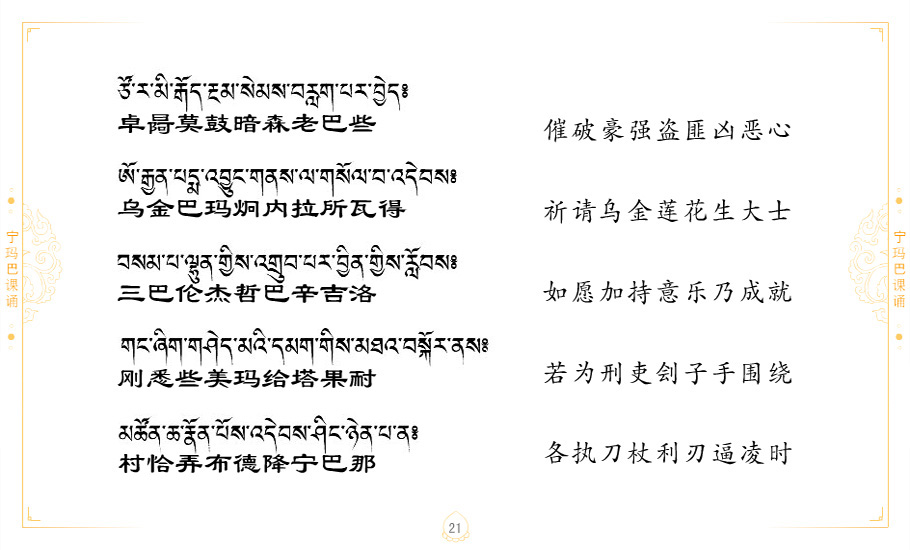 ཙོ་ར་མི་རྒོད་རྔམ་སེམས་བརླག་པར་བྱེད༔
卓㖷莫鼓暗森老巴些
催破豪强盗匪凶恶心
ཨོ་རྒྱན་པདྨ་འབྱུང་གནས་ལ་གསོལ་བ་འདེབས༔
乌金巴玛炯内拉所瓦得
祈请乌金莲花生大士
བསམ་པ་ལྷུན་གྱིས་འགྲུབ་པར་བྱིན་གྱིས་རློབས༔
三巴伦杰哲巴辛吉洛
如愿加持意乐乃成就
གང་ཞིག་གཤེད་མའི་དམག་གིས་མཐའ་བསྐོར་ནས༔
刚悉些美玛给塔果耐
若为刑吏刽子手围绕
མཚོན་ཆ་རྣོན་པོས་འདེབས་ཤིང་ཉེན་པ་ན༔
村恰弄布德降宁巴那
各执刀杖利刃逼凌时
宁玛巴课诵
宁玛巴课诵
21